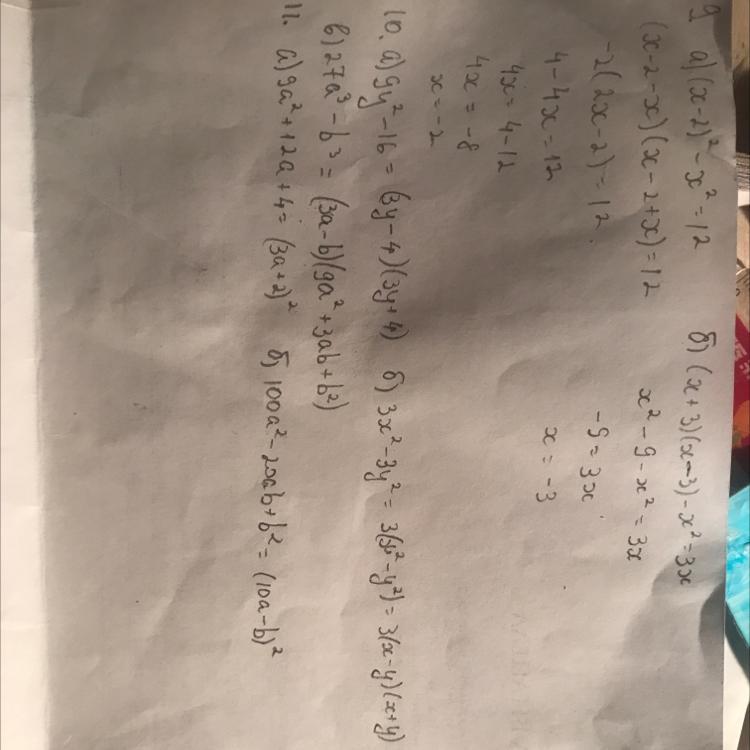 9 а) (x-2)² - x² = 12
(x-2-x)(x-2+x) = 12
-2(2x-2) = 12
4-4x = 12
4x = 4-12
4x = -8
x = -2
б) (x+3)(x-3) - x² = 3x
x² - 9 - x² = 3x
-9 = 3x
x = -3
10. а) 9y² - 16 = (3y-4)(3y+4) б) 3x² - 3y² = 3(x² - y²) = 3(x-y)(x+y)
в) 27a³ - b³ = (3a-b)(9a² + 3ab + b²)
11. а) 9a² + 12a + 4 = (3a+2)² б) 100a² - 20ab + b² = (10a-b)²